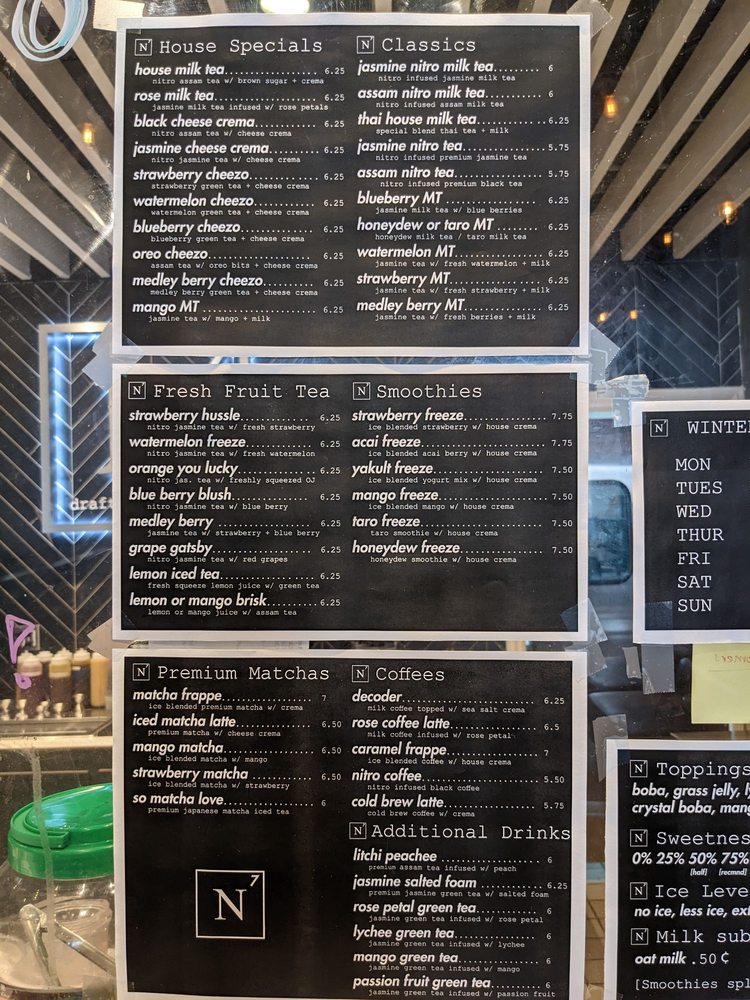 N7 House Specials
house milk tea................ 6.25
nitro assam tea w/ brown sugar + crema
rose milk tea................ 6.25
jasmine milk tea infused w/ rose petals
black cheese crema........... 6.25
nitro assam tea w/ cheese crema
jasmine cheese crema......... 6.25
nitro jasmine tea w/ cheese crema
strawberry cheezo............ 6.25
strawberry green tea + cheese crema
watermelon cheezo............ 6.25
watermelon green tea + cheese crema
blueberry cheezo............. 6.25
blueberry green tea + cheese crema
oreo cheezo.................. 6.25
assam tea w/ oreo bits + cheese crema
medley berry cheezo.......... 6.25
medley berry green tea + cheese crema
mango MT ................ 6.25
jasmine tea w/ mango + milk
N7 Classics
jasmine nitro milk tea......... 6
nitro infused jasmine milk tea
assam nitro milk tea........... 6
nitro infused assam milk tea
thai house milk tea............ 6.25
special blend thai tea + milk
jasmine nitro tea............. 5.75
nitro infused premium jasmine tea
assam nitro tea.............. 5.75
nitro infused premium black tea
blueberry MT ............... 6.25
jasmine milk tea w/ blue berries
honeydew or taro MT ........ 6.25
honeydew milk tea / taro milk tea
watermelon MT.............. 6.25
jasmine tea w/ fresh watermelon + milk
strawberry MT............... 6.25
jasmine tea w/ fresh strawberry + milk
medley berry MT............. 6.25
jasmine tea w/ fresh berries + milk
N7 Fresh Fruit Tea
strawberry hussle............ 6.25
nitro jasmine tea w/ fresh strawberry
watermelon freeze........... 6.25
nitro jasmine tea w/ fresh watermelon
orange you lucky............ 6.25
nitro jas. tea w/ freshly squeezed OJ
blue berry blush............. 6.25
nitro jasmine tea w/ blue berry
medley berry ............... 6.25
jasmine tea w/ strawberry + blue berry
grape gatsby................ 6.25
nitro jasmine tea w/ red grapes
lemon iced tea.............. 6.25
fresh squeeze lemon juice w/ green tea
lemon or mango brisk........ 6.25
lemon or mango juice w/ assam tea
N7 Smoothies
strawberry freeze............ 7.75
ice blended strawberry w/ house crema
acai freeze.................. 7.75
ice blended acai berry w/ house crema
yakult freeze................ 7.50
ice blended yogurt mix w/ house crema
mango freeze............... 7.50
ice blended mango w/ house crema
taro freeze.................. 7.50
taro smoothie w/ house crema
honeydew freeze............. 7.50
honeydew smoothie w/ house crema
N7 Premium Matchas
matcha frappe.............. 7
ice blended premium matcha w/ crema
iced matcha latte............ 6.50
premium matcha w/ cheese crema
mango matcha.............. 6.50
ice blended matcha w/ mango
strawberry matcha .......... 6.50
ice blended matcha w/ strawberry
so matcha love.............. 6
premium japanese matcha iced tea
N7
N7 Coffees
decoder.................... 6.25
milk coffee topped w/ sea salt crema
rose coffee latte............. 6.5
milk coffee infused w/ rose petal
caramel frappe.............. 7
ice blended coffee w/ house crema
nitro coffee................. 5.50
nitro infused black coffee
cold brew latte.............. 5.75
cold brew coffee w/ crema
N7 Additional Drinks
litchi peachee .............. 6
premium assam tea infused w/ peach
jasmine salted foam ......... 6.25
premium jasmine green tea w/ salted foam
rose petal green tea......... 6
jasmine green tea infused w/ rose petal
lychee green tea............ 6
jasmine green tea infused w/ lychee
mango green tea............ 6
jasmine green tea infused w/ mango
passion fruit green tea....... 6
jasmine green tea infused w/ passion fruit
N7 WINTER
MON
TUES
WED
THUR
FRI
SAT
SUN
N7 Toppings
boba, grass jelly, ly
crystal boba, mang
N7 Sweetnes
0% 25% 50% 75%
[half] [recmnd]
N7 Ice Leve
no ice, less ice, ext
N7 Milk sub
oat milk .50¢
[Smoothies spi
draft